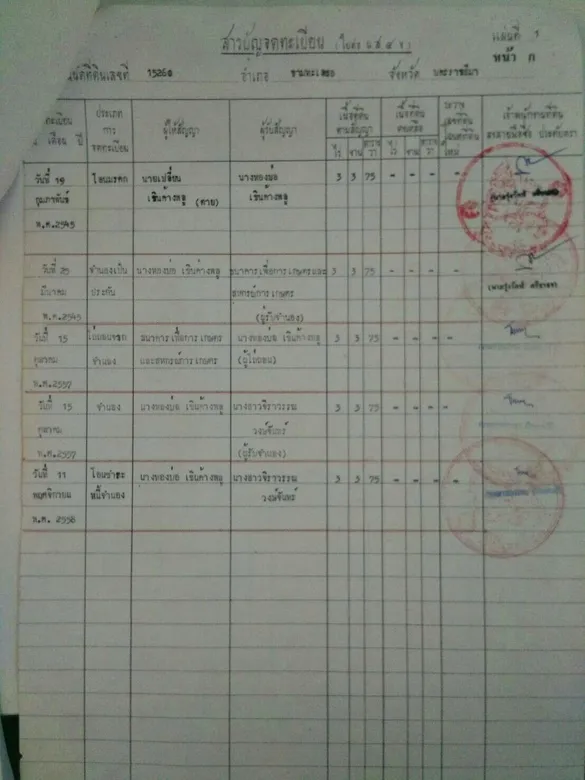 สารบัญจดทะเบียน (ใบต่อ น.ส ๔ จ) แผ่นที่ 1
หน้า ก
โฉนดที่ดินเลขที่ อำเภอ จังหวัด นครราชสีมา
จดทะเบียน วัน เดือน ปี
ประเภทการจดทะเบียน
ผู้ให้สัญญา
ผู้รับสัญญา
เนื้อที่ดินตามสัญญา
ไร่ งาน ตารางวา
เนื้อที่ดินคงเหลือ
ไร่ งาน ตารางวา
ระวาง เลขที่ดิน โฉนดที่ดินใหม่
เจ้าพนักงานที่ดิน ลงลายมือชื่อ ประทับตรา
วันที่ 19 โอนมรดก นายเปลี่ยน นางทองม่อ 3 3 75 - - - -
กุมภาพันธ์ เชินค้างพลู (ตาย) เชินค้างพลู
พ.ศ.2545
วันที่ 25 จำนองเป็น นางทองม่อ เชินค้างพลู ธนาคารเพื่อการเกษตรและ 3 3 75 - - - -
มีนาคม ประกัน สหกรณ์การเกษตร
พ.ศ.2545 (ผู้รับจำนอง)
วันที่ 15 ไถ่ถอนจาก ธนาคารเพื่อการเกษตร นางทองม่อ เชินค้างพลู 3 3 75 - - - -
ตุลาคม จำนอง และสหกรณ์การเกษตร (ผู้ไถ่ถอน)
พ.ศ.2557
วันที่ 15 จำนอง นางทองม่อ เชินค้างพลู นางสาวจิราวรรณ 3 3 75 - - - -
ตุลาคม วงษ์จันทร์
พ.ศ.2557 (ผู้รับจำนอง)
วันที่ 11 โอนชำระ นางทองม่อ เชินค้างพลู นางสาวจิราวรรณ 3 3 75 - - - -
พฤศจิกายน หนี้จำนอง วงษ์จันทร์
พ.ศ. 2558